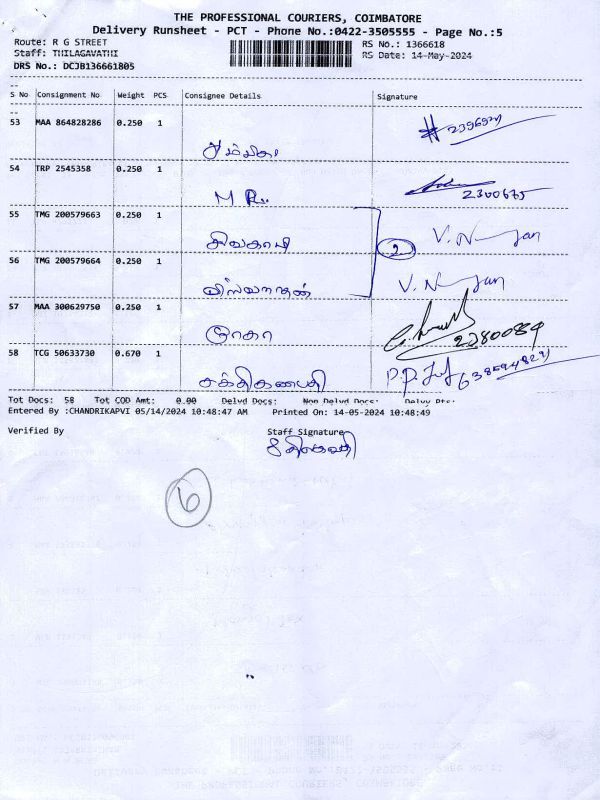 THE PROFESSIONAL COURIERS, COIMBATORE
Delivery Runsheet - PCT - Phone No.:0422-3505555 - Page No.:5
Route: R G STREET
RS No.: 1366618
Staff: THILAGAVATHI
RS Date: 14-May-2024
DRS No.: DCJB136661805
S No Consignment No Weight PCS Consignee Details Signature
53 MAA 864828286 0.250 1
54 TRP 2545358 0.250 1
2300675
55 TMG 200579663 0.250 1
சிவகாமி
2
56 TMG 200579664 0.250 1
விஸ்வநாதன்
57 MAA 300629750 0.250 1
ரேகா
58 TCG 50633730 0.670 1
சக்திகணபதி
Tot Docs: 58 Tot COD Amt: 0.00 Delvd Docs: Non Delvd Docs: Delvy Pts:
Entered By :CHANDRIKAPVI 05/14/2024 10:48:47 AM Printed On: 14-05-2024 10:48:49
Verified By Staff Signature
6